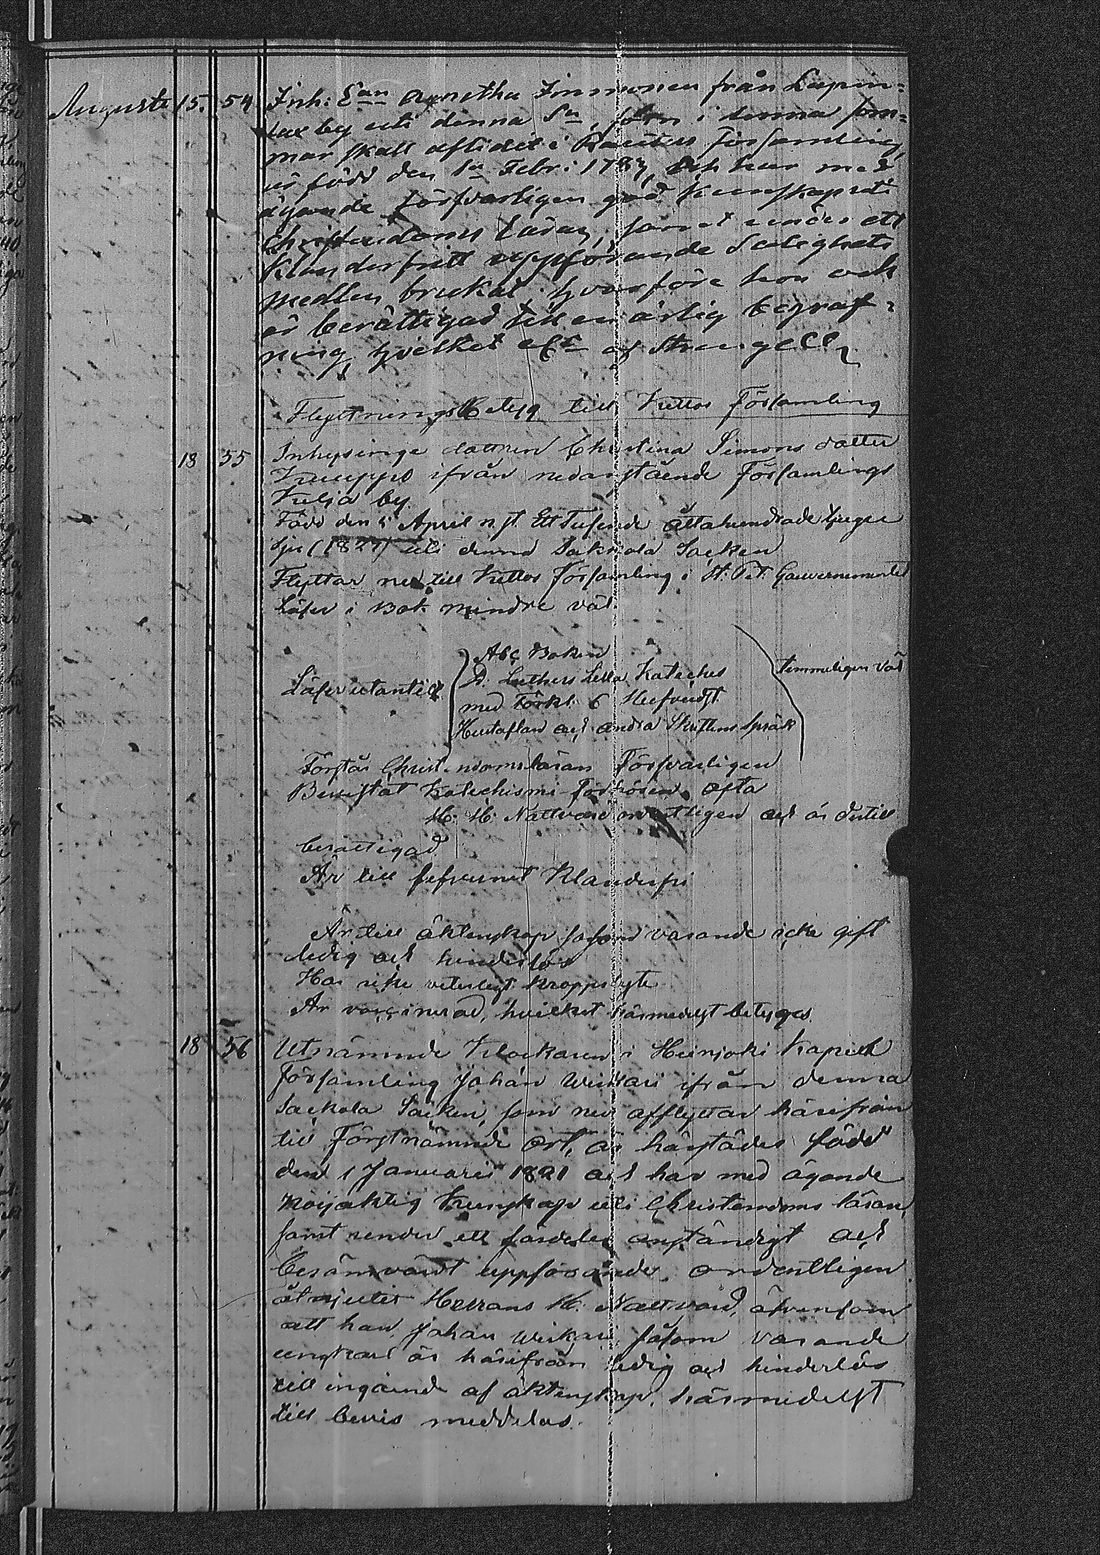 Augusti 15. 54 Inh: E:an Agnetha Immonen från Lapin-
lax by uti denna S:n, som i denna som-
mar skall aflidit i Rautus församling,
är född den 1:a Febr: 1787, och har med
ägande försvarligen god kunskap uti
Christendoms läran, samt under ett
klanderfritt uppförande Salighets
medlen brukat hvarföre hon ock
är berättigad till en ärlig begraf-
ning, hvilket af
Flyttnings Betyg till Keltos Församling
18 55 Inhysinge dottren Christina Simons dotter
ifrån nedanstående Församlings
Kelja by
Född den 5 April n. st. Ett Tusende åttahundrade tjuge
sju (1827) uti denna Sakkola Socken
Flyttar nu till Keltos Församling i St. Pet. Gouvernementet
Läser i Bok mindre väl
Abc Boken
D. Luthers Lilla Kateches temmeligen väl
Läser utantill med Förkl.
Hustaflan och andra Skriftens språk
Förstår Christendomsläran Försvarligen
Bevistat Katechismi förhören ofta
H. H. Nattvard ordentligen och är dertill
berättigad
Är till frejd Klanderfri
Är till äktenskap såsom varande icke gift
ledig och hinderlös
Har icke veterligt kroppslyte
Är vaccinerad, hvilket härmedelst betygas.
18 56 Utnämnde Klockaren i Heinjoki Kapell
församling Johan Wiskari ifrån denna
Sackola Socken, som nu afflyttar härifrån
till Förstnämnde ort, är härstädes född
den 1 Januarii 1821 och har med ägande
noijaktig kunskap uti Christendoms läran,
samt under ett särdeles anständigt och
berömvärdt uppförande ordentligen
åtnjutit Herrans H. Nattvard, äfvensom
att han Johan Wiskari såsom varande
ungkarl är härifrån ledig och hinderlös
till ingående af äktenskap, härmedelst
till bevis meddelas.